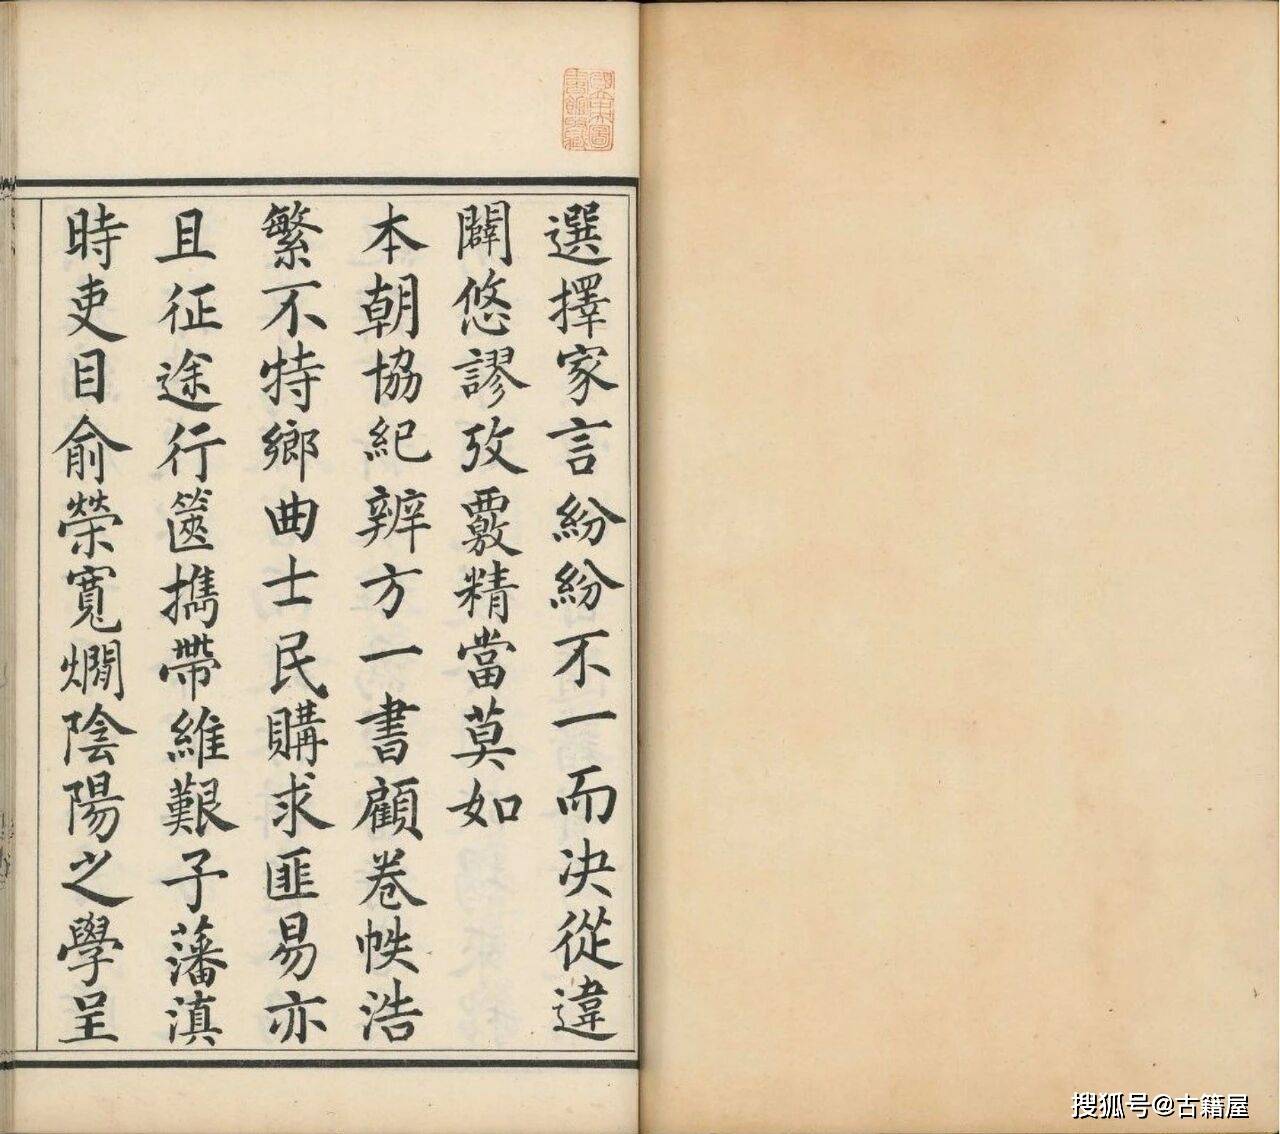 選擇家言紛紛不一而決從違
闢悠謬攷覈精當莫如
本朝協紀辨方一書顧卷帙浩
繁不特鄉曲士民購求匪易亦
且征途行篋攜帶維艱予藩滇
時吏目俞榮寬爛陰陽之學呈
搜狐号@古籍屋